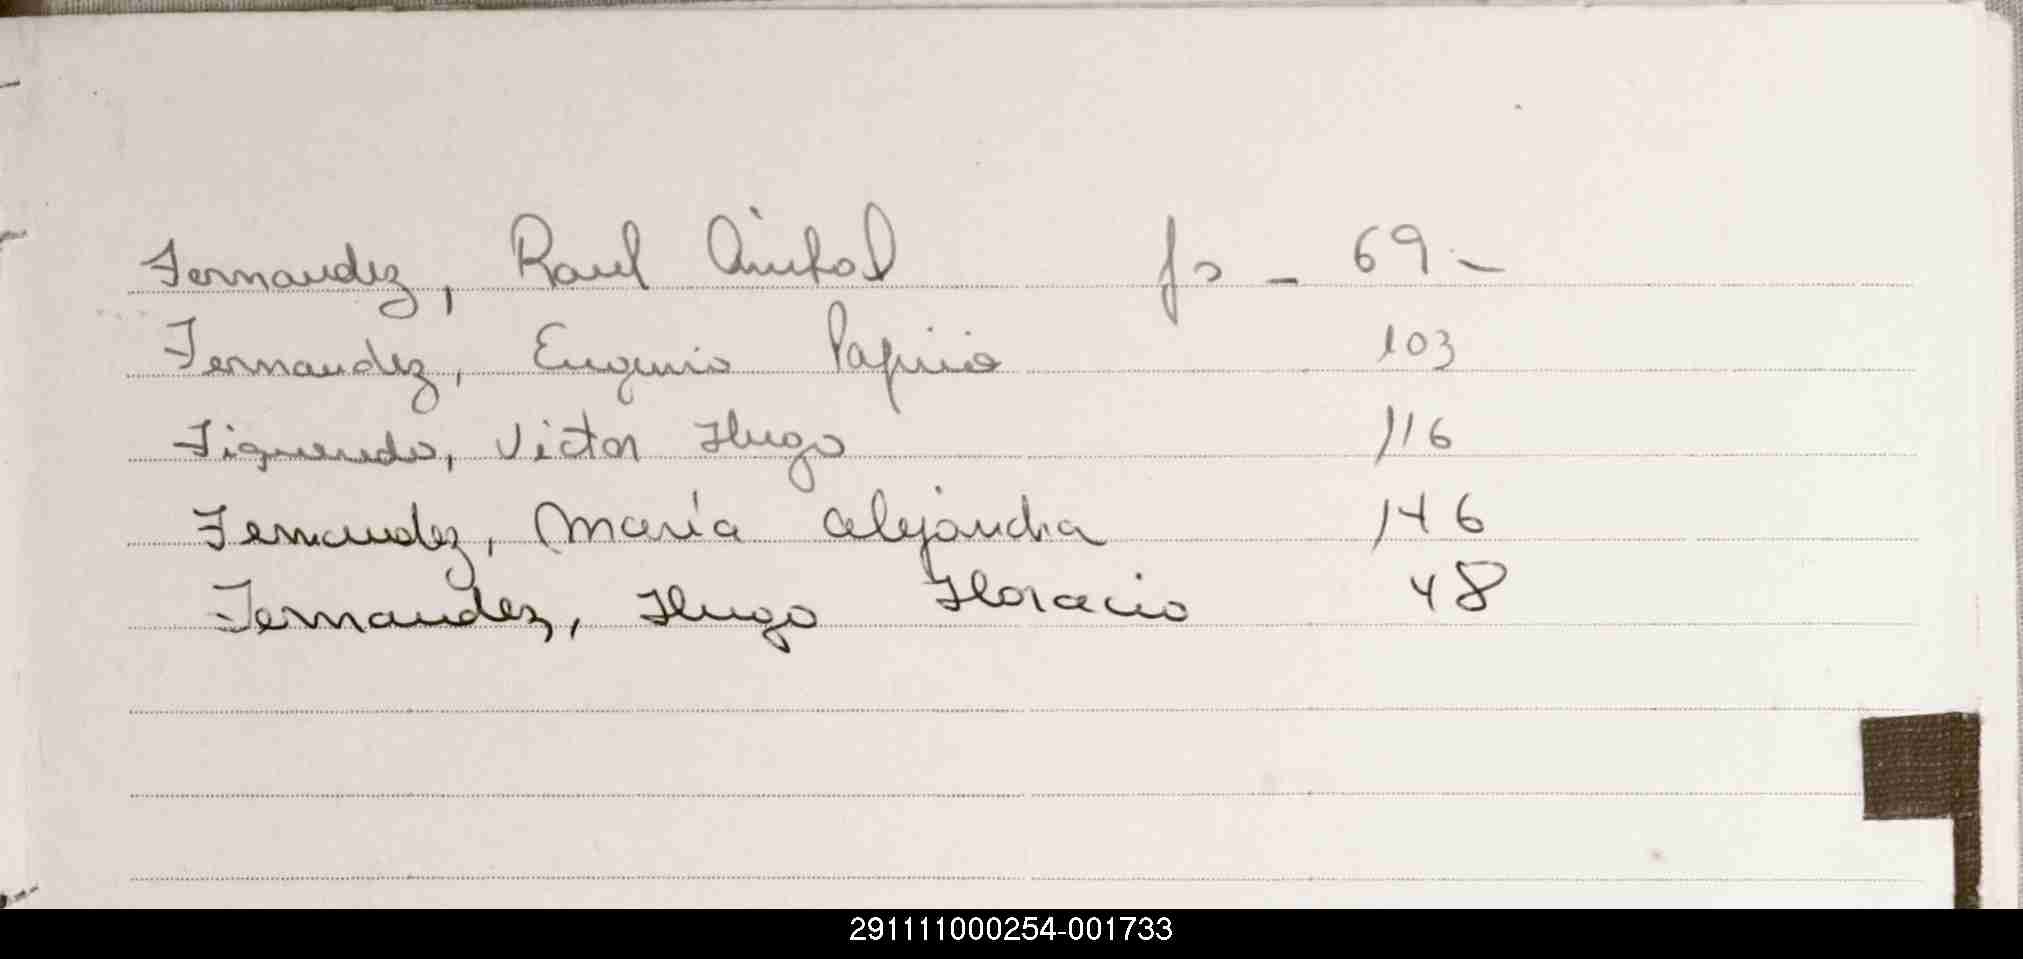 Fernandez, Raul Anibal fs - 69.-
Fernandez, Eugenio Papirio 103
Figueredo, Victor Hugo 116
Fernandez, María Alejandra 146
Fernandez, Hugo Horacio 48
291111000254-001733